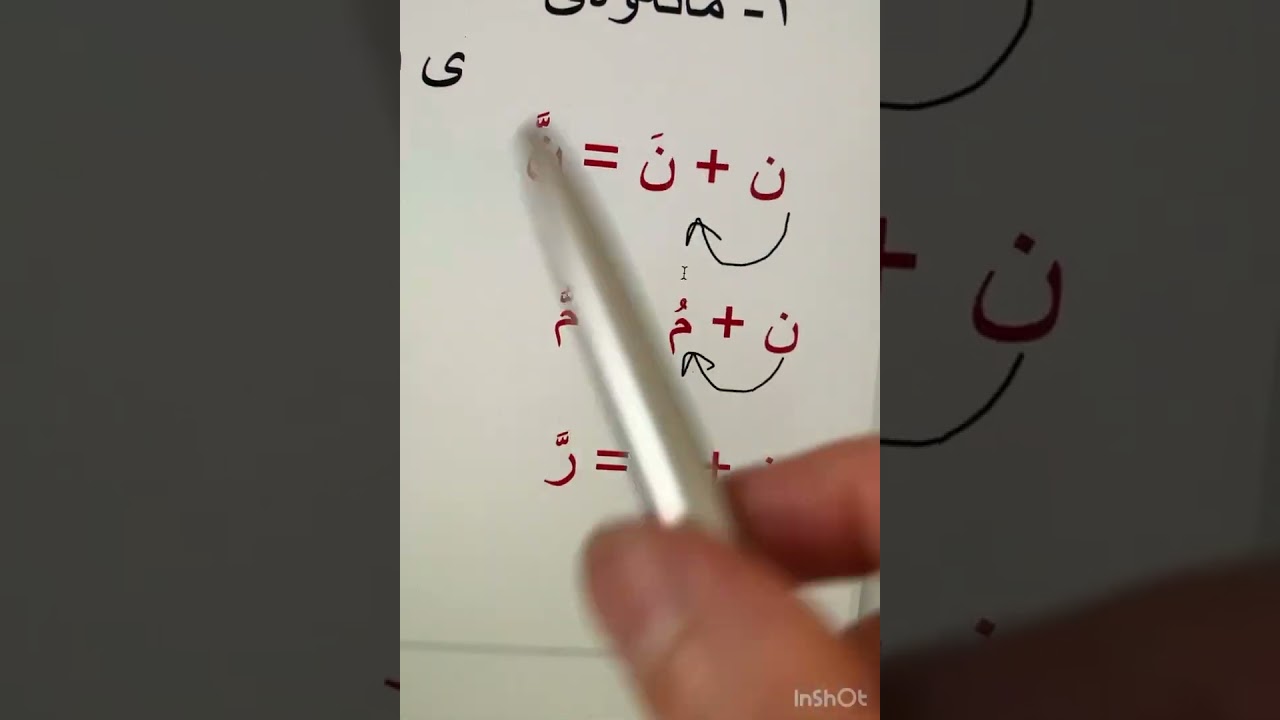 ١ -
ی
ن + نَ = نَّ
ن + مُ مَّ
ن + = رَّ
InShOt